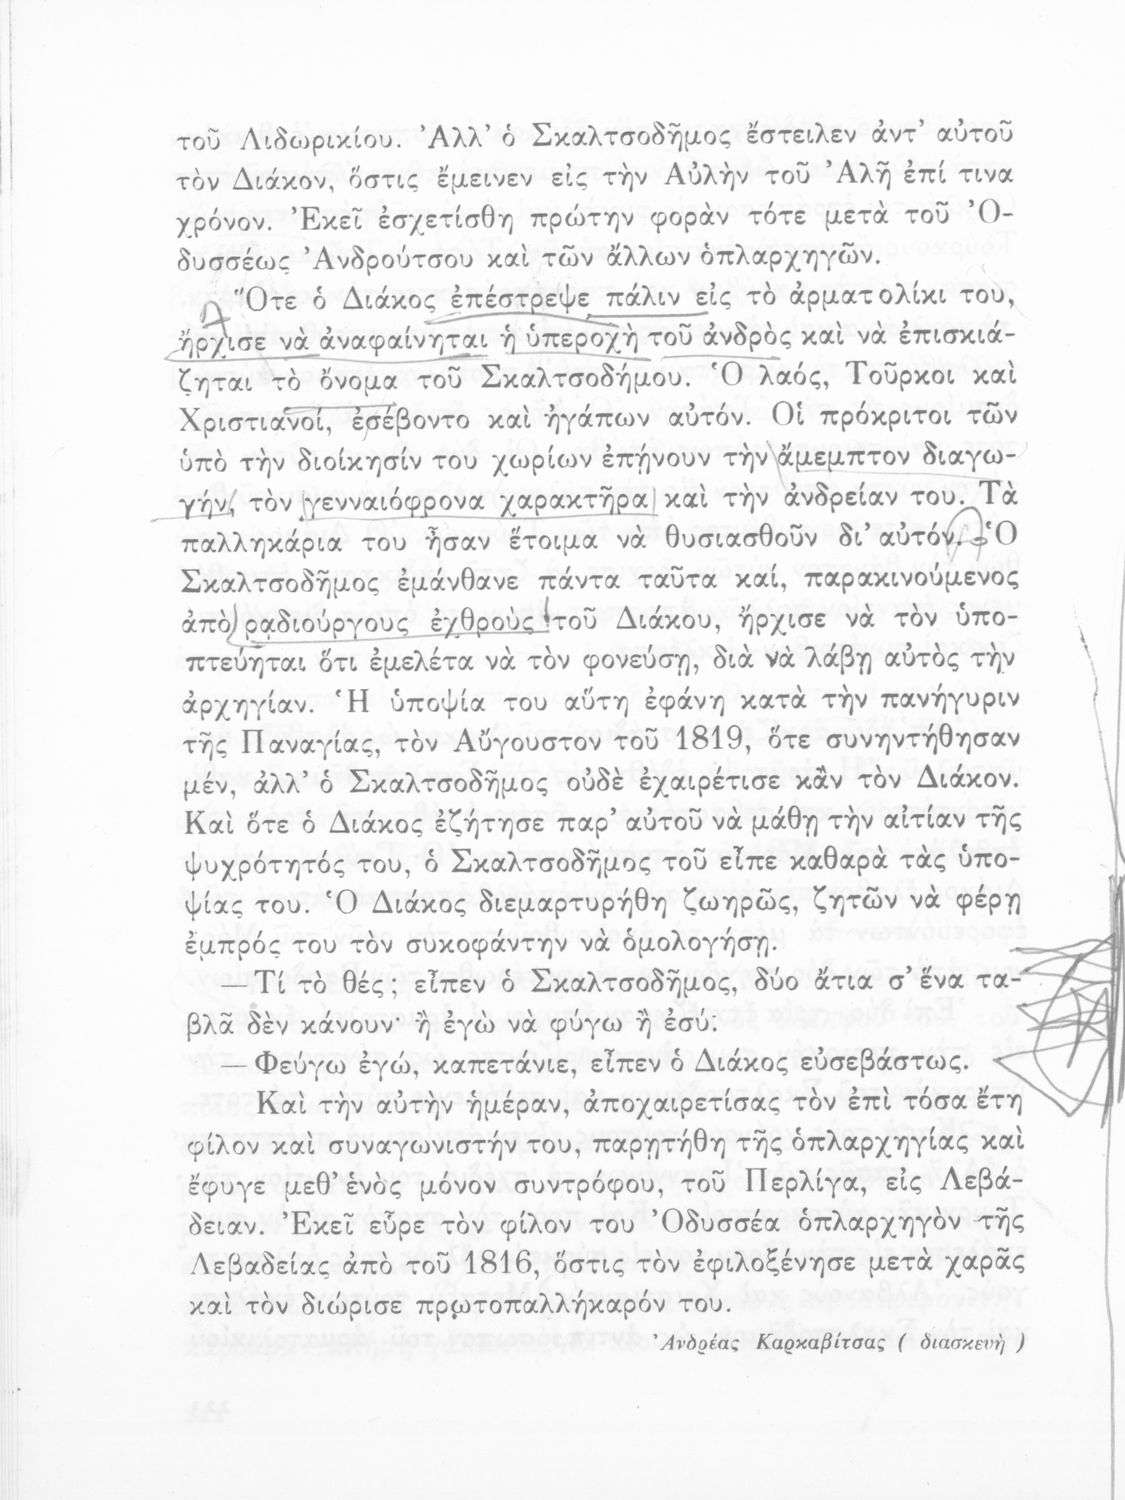 τοῦ Λιδωρικίου. Ἀλλ' ὁ Σκαλτσοδῆμος ἔστειλεν ἀντ' αὐτοῦ
τὸν Διάκον, ὅστις ἔμεινεν εἰς τὴν Αὐλὴν τοῦ Ἀλῆ ἐπί τινα
χρόνον. Ἐκεῖ ἐσχετίσθη πρώτην φορὰν τότε μετὰ τοῦ Ὀ-
δυσσέως Ἀνδρούτσου καὶ τῶν ἄλλων ὁπλαρχηγῶν.
Ὅτε ὁ Διάκος ἐπέστρεψε πάλιν εἰς τὸ ἀρματολίκι του,
ἤρχισε νὰ ἀναφαίνηται ἡ ὑπεροχὴ τοῦ ἀνδρὸς καὶ νὰ ἐπισκιά-
ζηται τὸ ὄνομα τοῦ Σκαλτσοδήμου. Ὁ λαός, Τοῦρκοι καὶ
Χριστιανοί, ἐσέβοντο καὶ ἠγάπων αὐτόν. Οἱ πρόκριτοι τῶν
ὑπὸ τὴν διοίκησίν του χωρίων ἐπῄνουν τὴν ἄμεμπτον διαγω-
γήν, τὸν γενναιόφρονα χαρακτῆρα καὶ τὴν ἀνδρείαν του. Τὰ
παλληκάρια του ἦσαν ἕτοιμα νὰ θυσιασθοῦν δι' αὐτόν. Ὁ
Σκαλτσοδῆμος ἐμάνθανε πάντα ταῦτα καί, παρακινούμενος
ἀπὸ ραδιούργους ἐχθροὺς τοῦ Διάκου, ἤρχισε νὰ τὸν ὑπο-
πτεύηται ὅτι ἐμελέτα νὰ τὸν φονεύσῃ, διὰ νὰ λάβῃ αὐτὸς τὴν
ἀρχηγίαν. Ἡ ὑποψία του αὕτη ἐφάνη κατὰ τὴν πανήγυριν
τῆς Παναγίας, τὸν Αὔγουστον τοῦ 1819, ὅτε συνηντήθησαν
μέν, ἀλλ' ὁ Σκαλτσοδῆμος οὐδὲ ἐχαιρέτισε κἂν τὸν Διάκον.
Καὶ ὅτε ὁ Διάκος ἐζήτησε παρ' αὐτοῦ νὰ μάθῃ τὴν αἰτίαν τῆς
ψυχρότητός του, ὁ Σκαλτσοδῆμος τοῦ εἶπε καθαρὰ τὰς ὑπο-
ψίας του. Ὁ Διάκος διεμαρτυρήθη ζωηρῶς, ζητῶν νὰ φέρῃ
ἐμπρός του τὸν συκοφάντην νὰ ὁμολογήσῃ.
— Τί τὸ θές; εἶπεν ὁ Σκαλτσοδῆμος, δύο ἄτια σ' ἕνα τα-
βλᾶ δὲν κάνουν· ἢ ἐγὼ νὰ φύγω ἢ ἐσύ;
— Φεύγω ἐγώ, καπετάνιε, εἶπεν ὁ Διάκος εὐσεβάστως.
Καὶ τὴν αὐτὴν ἡμέραν, ἀποχαιρετίσας τὸν ἐπὶ τόσα ἔτη
φίλον καὶ συναγωνιστήν του, παρῃτήθη τῆς ὁπλαρχηγίας καὶ
ἔφυγε μεθ' ἑνὸς μόνον συντρόφου, τοῦ Περλίγα, εἰς Λεβά-
δειαν. Ἐκεῖ εὗρε τὸν φίλον του Ὀδυσσέα ὁπλαρχηγὸν τῆς
Λεβαδείας ἀπὸ τοῦ 1816, ὅστις τὸν ἐφιλοξένησε μετὰ χαρᾶς
καὶ τὸν διώρισε πρωτοπαλλήκαρόν του.
Ἀνδρέας Καρκαβίτσας ( διασκευὴ )